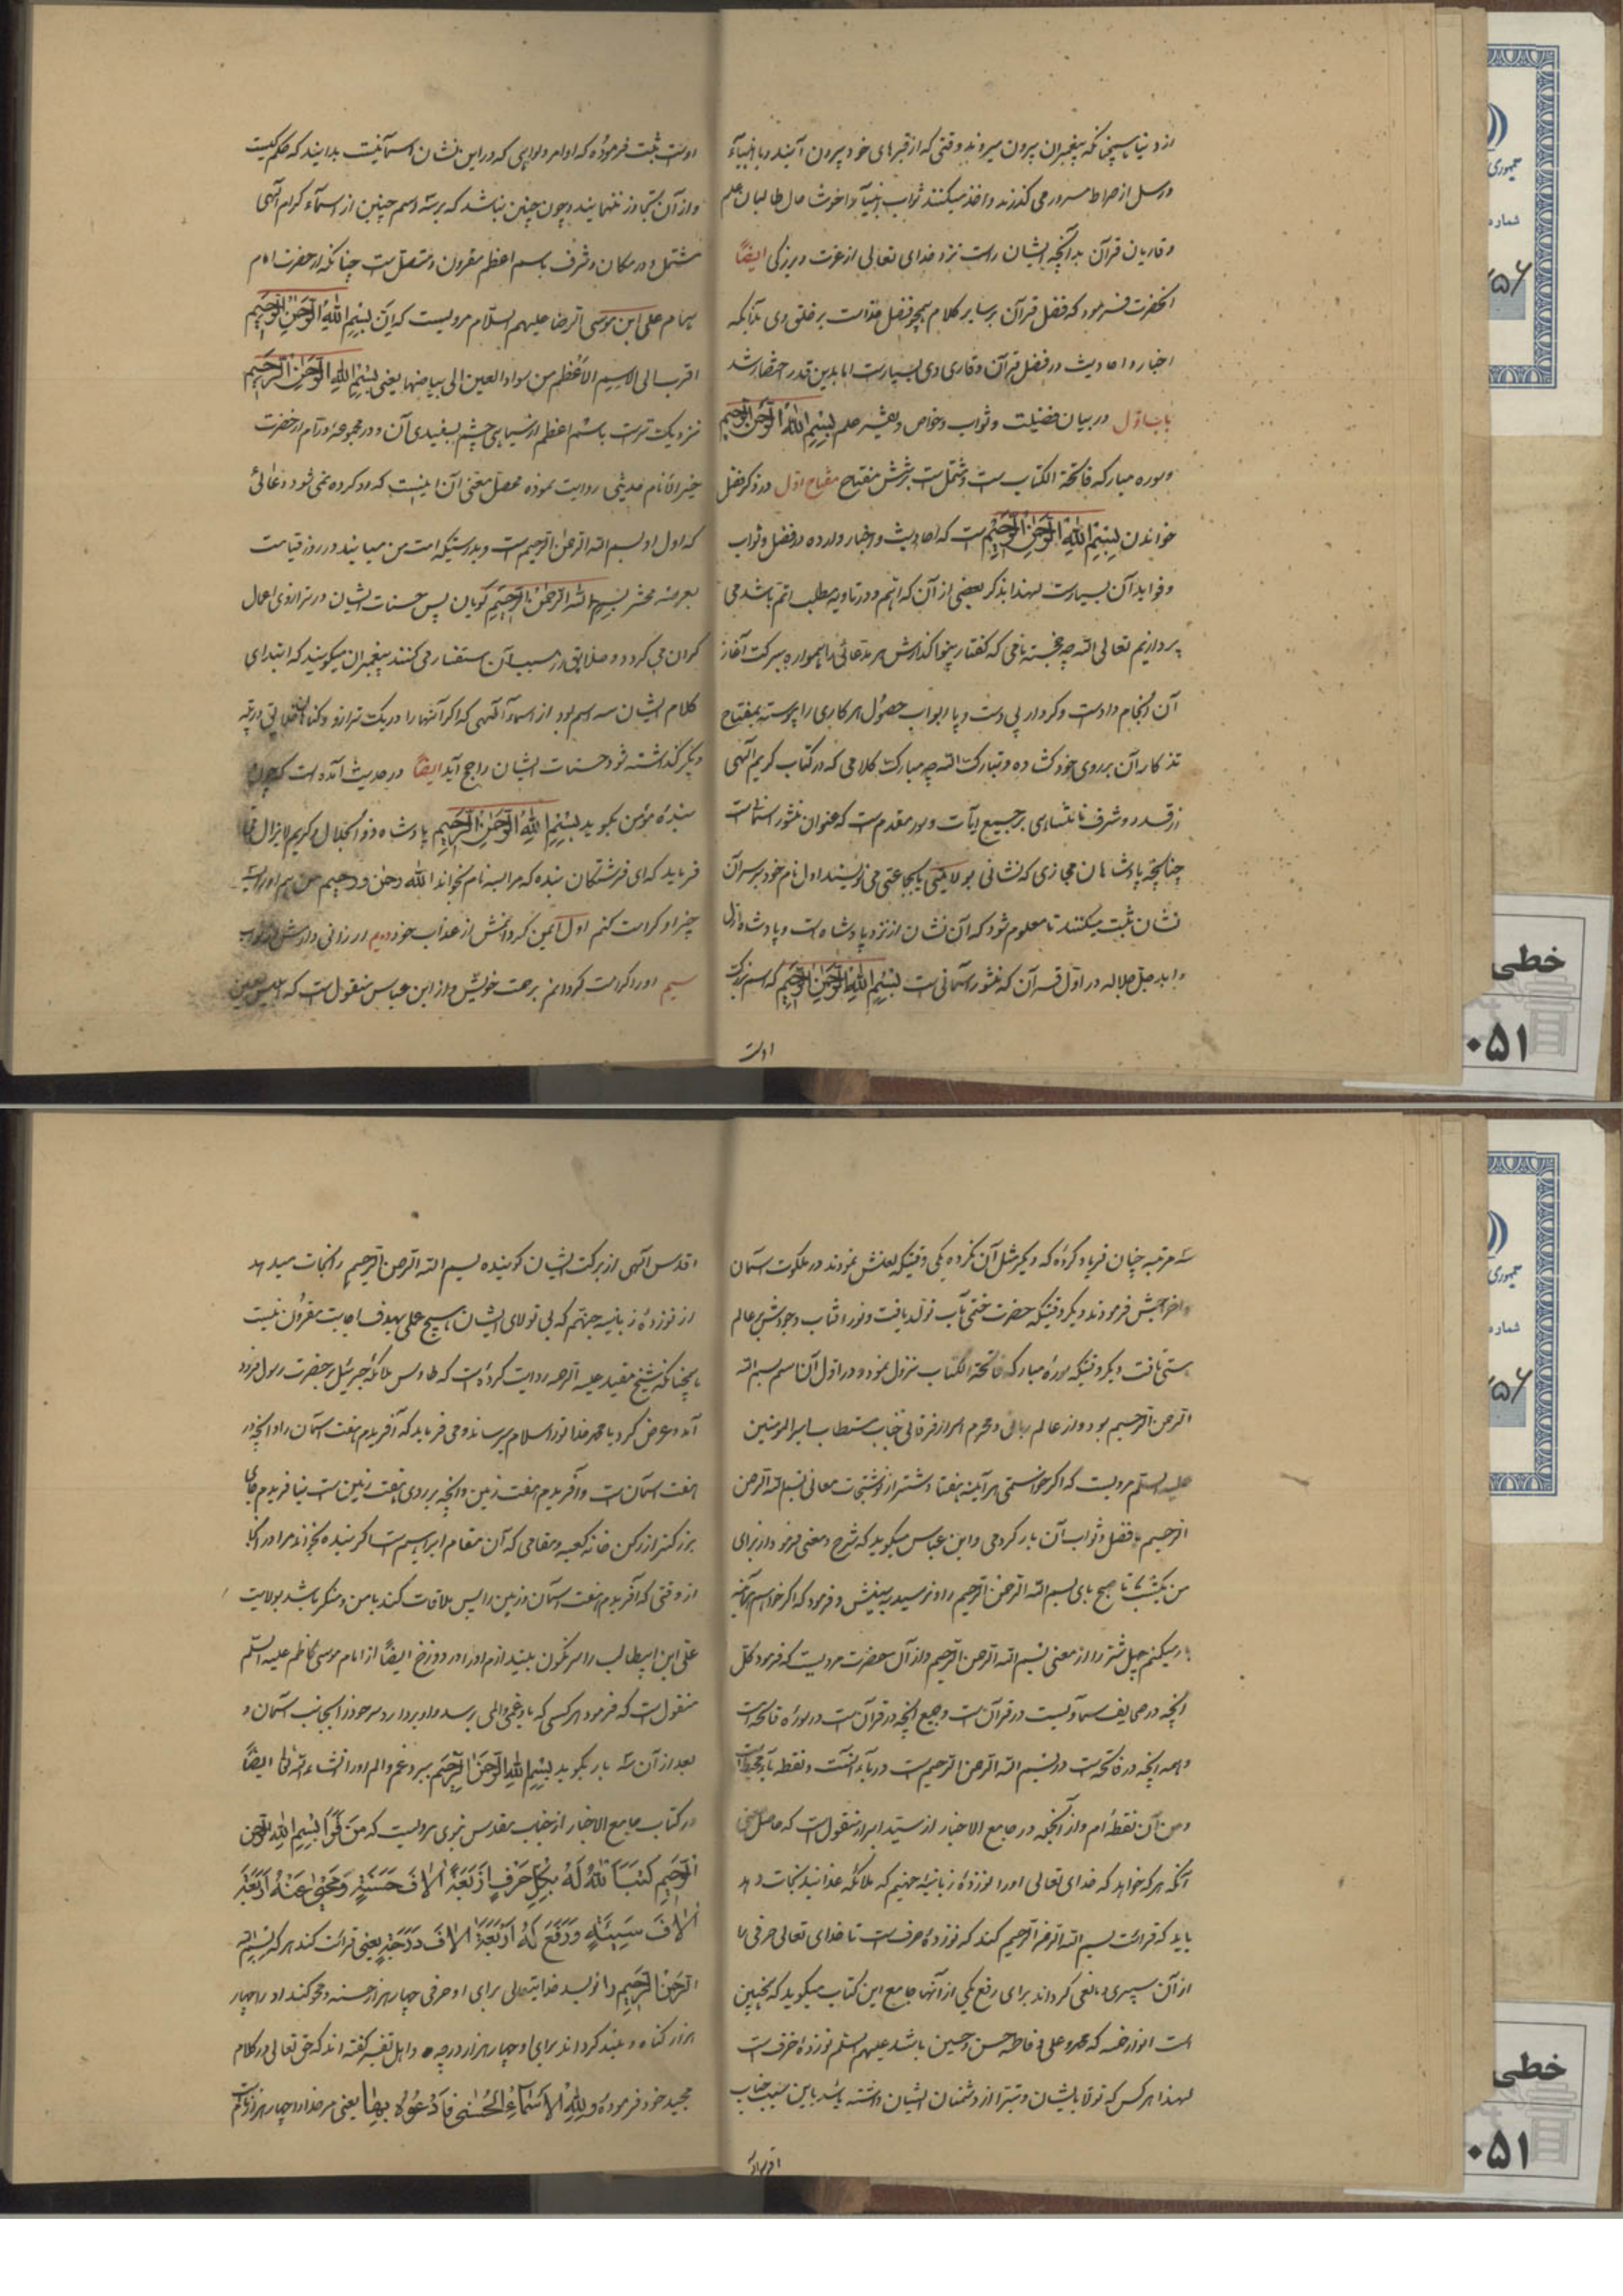 از دنیا همچنانکه پیغمبران بیرون میروند و وقتی که از قبرهای خود بیرون آیند و با انبیآء
و رسل از صراط مسرور می گذرند و اخذ میکنند ثواب انبیآ و اخوشا حال طالبان علم
و قاریان قرآن بدآنچه ایشان راست نزد خدای تعالی از عزت و بزرگی ایضاً
آنحضرت فرمود که فضل قرآن بر سایر کلام همچو فضل خداست بر خلق وی بدانکه
اخبار و احادیث در فضل قرآن و قاری وی بسیارست اما بدین قدر اختصار شد
باب اول در بیان فضیلت و ثواب و خواص و تفسیر علم بسم الله الرحمن الرحیم
و سوره مبارکه فاتحة الکتاب ست و مشتمل ست بر شش مفتاح مفتاح اول در ذکر فضل
خواندن بسم الله الرحمن الرحیم ست که احادیث و اخبار وارده در فضل و ثواب
و فواید آن بسیارست لهذا بذکر بعضی از آن که اهم و در تادیه مطلب اتم باشد می
پردازیم تعالی الله چه خجسته نامی که گفتار بینوا گذارش هر مدعائی را همواره ببرکت آغاز
آن انجام دادست و کردار بی دست و پا ابواب حصول هر کاری را پیوسته بمفتاح
تذکار آن بر روی خود کشاده و تبارکت الله چه مبارکت کلامی که در کتاب کریم الهی
از قدر و شرف نامتناهی بر جمیع آیات و سور مقدم ست که عنوان منشور آسمانست
چنانچه پادشاهان مجازی که نشانی بولایتی یا بجماعتی می نویسند اول نام خود بر سر آن
نشان ثبت میکنند تا معلوم شود که آن نشان از نزد پادشاه است و پادشاه ازل
و ابد جل جلاله در اول قرآن که منشور آسمانی ست بسم الله الرحمن الرحیم که اسم بزرگ
اوست
اوست ثبت فرموده که اوامر و نواهی که در این نشان آسمانیست بدانید که حکم کیست
و از آن تجاوز ننمایند و چون چنین نباشد که بر سه اسم چنین از اسمآء کرام الهی
مشتمل و در مکان و شرف باسم اعظم مقرون و متصل ست چنانکه از حضرت امام
همام علی ابن موسی الرضا علیهم السلام مرویست که ان بسم الله الرحمن الرحیم
اقرب الی الاسم الاعظم من سواد العین الی بیاضها یعنی بسم الله الرحمن الرحیم
نزدیکترست باسم اعظم از سیاهی چشم بسفیدی آن و در مجموعه ورام از حضرت
خیر الانام حدیثی روایت نموده محصل معنی آن اینست که رد کرده نمی شود دعائی
که اول او بسم الله الرحمن الرحیم ست و بدرستیکه امت من میایند در روز قیامت
بعرصه محشر بسم الله الرحمن الرحیم گویان پس حسنات ایشان در ترازوی اعمال
گران می گردد و خلایق از سبب آن استفسار می کنند پیغمبران میگویند که ابتدای
کلام ایشان سه اسم بود از اسمآء الهی که اگر آنها را در یک ترازو و گناهان خلایق در پله
دیگر گذاشته شود حسنات ایشان راجح آید ایضاً در حدیث آمده است که چون
بندهٔ مؤمن بگوید بسم الله الرحمن الرحیم پادشاه ذو الجلال و کریم لایزال
فرماید که ای فرشتگان بنده که مرا بسه نام بخواند الله و رحمن و رحیم من هم او را سه
چیز او کرامت کنم اول ایمن گردانمش از عذاب خود دویم ارزانی دارمش
سیم او را کرامت گردانم برحمت خویش و از ابن عباس منقول ست که ابلیس لعین
سه مرتبه چنان فریاد کرده که دیگر مثل آن نکرده یکی وقتیکه لعنش نمودند و در ملکوت آسمان
و اخراجش فرمودند و دیگر وقتیکه حضرت ختمی مآب تولد یافت و نور آفتاب وجودش بر عالم
هستی تافت و دیگر وقتیکه سورهٔ مبارکه فاتحة الکتاب نزول نمود و در اول آن اسم بسم الله
الرحمن الرحیم بود و از عالم ربانی و محرم اسرار فرقانی جناب مستطاب امیر المومنین
علیه السلم مرویست که اگر خواستمی هر آینه هفتاد شتر از نوشتجات معانی بسم الله الرحمن
الرحیم با فضل و ثواب آن بار کردمی و ابن عباس میگوید که شرح و معنی فرمود از برای
من یکشب تا صبح بای بسم الله الرحمن الرحیم را و نرسید بسینش و فرمود که اگر خواهم هر آینه
بار میکنم چهل شتر را از معنی بسم الله الرحمن الرحیم و از آن حضرت مرویست که فرمود کل
آنچه در صحایف سماویست در قرآن ست و جمیع آنچه در قرآن ست در سورهٔ فاتحه است
و همه آنچه در فاتحه ست در بسم الله الرحمن الرحیم ست در بآء آنست و نقطه بآء
و من آن نقطه ام و از آنجمله در جامع الاخبار از سید ابرار منقول است که حاصل معنی
آنکه هر که خواهد که خدای تعالی او را از نوزدهٔ زبانیه جهنم که ملائکه عذابند نجات دهد
باید که قرائت بسم الله الرحمن الرحیم کند که نوزده حرف ست تا خدای تعالی حرفی را
از آن سپری و مانعی گرداند برای رفع یکی از آنها جامع این کتاب میگوید که همچنین
است انوار خمسه که محمد و علی و فاطمه حسن و حسین باشد علیهم السلم نوزده حرف ست
لهذا هر کس که تولا بایشان و تبرا از دشمنان ایشان داشته باشد باین سبب جناب
اقدس الهی از برکت ایشان گوینده بسم الله الرحمن الرحیم را نجات میدهد
از نوزدهٔ زبانیه جهنم که بی تولای ایشان هیچ عملی بهدف اجابت مقرون نیست
همچنانکه شیخ مفید علیه الرحمه روایت کرده است که طاوس ملائکه جبرئیل بر حضرت رسول فرود
آمد و عرض کرد یا محمد خدا تو را سلام میرساند و می فرماید که آفریدم هفت آسمان را و آنچه در
هفت آسمان ست و آفریدم هفت زمین و آنچه بر روی هفت زمین ست نیافریدم جای
بزرگتر از رکن خانه کعبه و مقامی که آن مقام ابراهیم ست اگر بنده بخواند مرا در آنجا
از وقتی که آفریدم هفت آسمان و زمین را پس ملاقات کند با من و منکر باشد بولایت
علی ابن ابیطالب را سرنگون بیندازم او را در دوزخ ایضاً از امام موسی کاظم علیه السلم
منقول است که فرمود هر کسی که باو غمی و المی رسد و او بردارد سر خود را بجانب آسمان و
بعد از آن سه بار بگوید بسم الله الرحمن الرحیم ببرد غم و الم او را انشاء الله تعالی ایضاً
در کتاب جامع الاخبار از جناب مقدس نبوی مرویست که من قرأ بسم الله الرحمن
الرحیم کتب الله له بکل حرف اربعة آلاف حسنة و محی عنه اربعة
آلاف سیئة و رفع له اربعة آلاف درجة یعنی قرائت کند هر که بسم الله
الرحمن الرحیم را نویسد خدایتعالی برای او حرفی چهار هزار حسنه و محو کند از او چهار
هزار گناه و بلند گرداند برای او چهار هزار درجه و اهل تفسیر گفته اند که حق تعالی در کلام
مجید خود فرموده و لله الاسماء الحسنی فادعوه بها یعنی مر خدا را چهار هزار نام ست
جمهوری
شماره
۵۶
خطی
۰۵۱
جمهوری
شماره
۵۶
خطی
۰۵۱